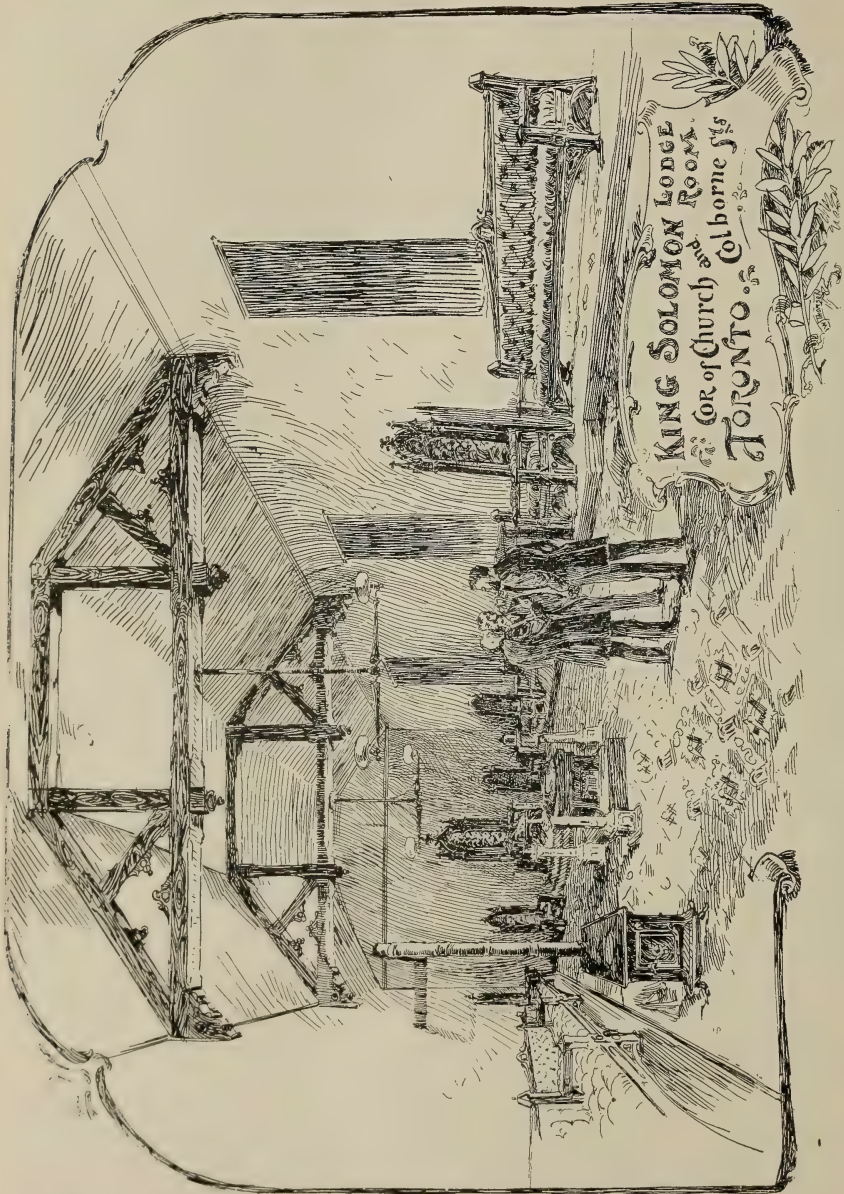 KING SOLOMON LODGE
ROOM.
COR of Church and Colborne Sts
TORONTO.